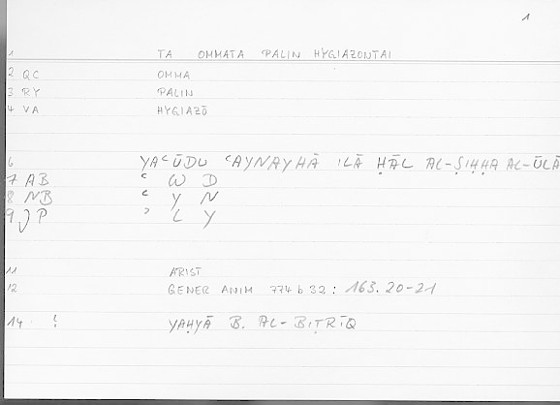 1
1 TA OMMATA PALIN HYGIAZONTAI
2 QC OMMA
3 RY PALIN
4 VA HYGIAZŌ
6 YAʿŪDU ʿAYNAYHĀ ʾILĀ ḤĀL AL-ṢIḤḤA AL-ŪLĀ
7 AB ʿ W D
8 NB ʿ Y N
9 JP ʾ L Y
11 ARIST
12 GENER ANIM 774 b 32 : 163. 20-21
14 ! YAḤYĀ B. AL-BIṬRĪQ